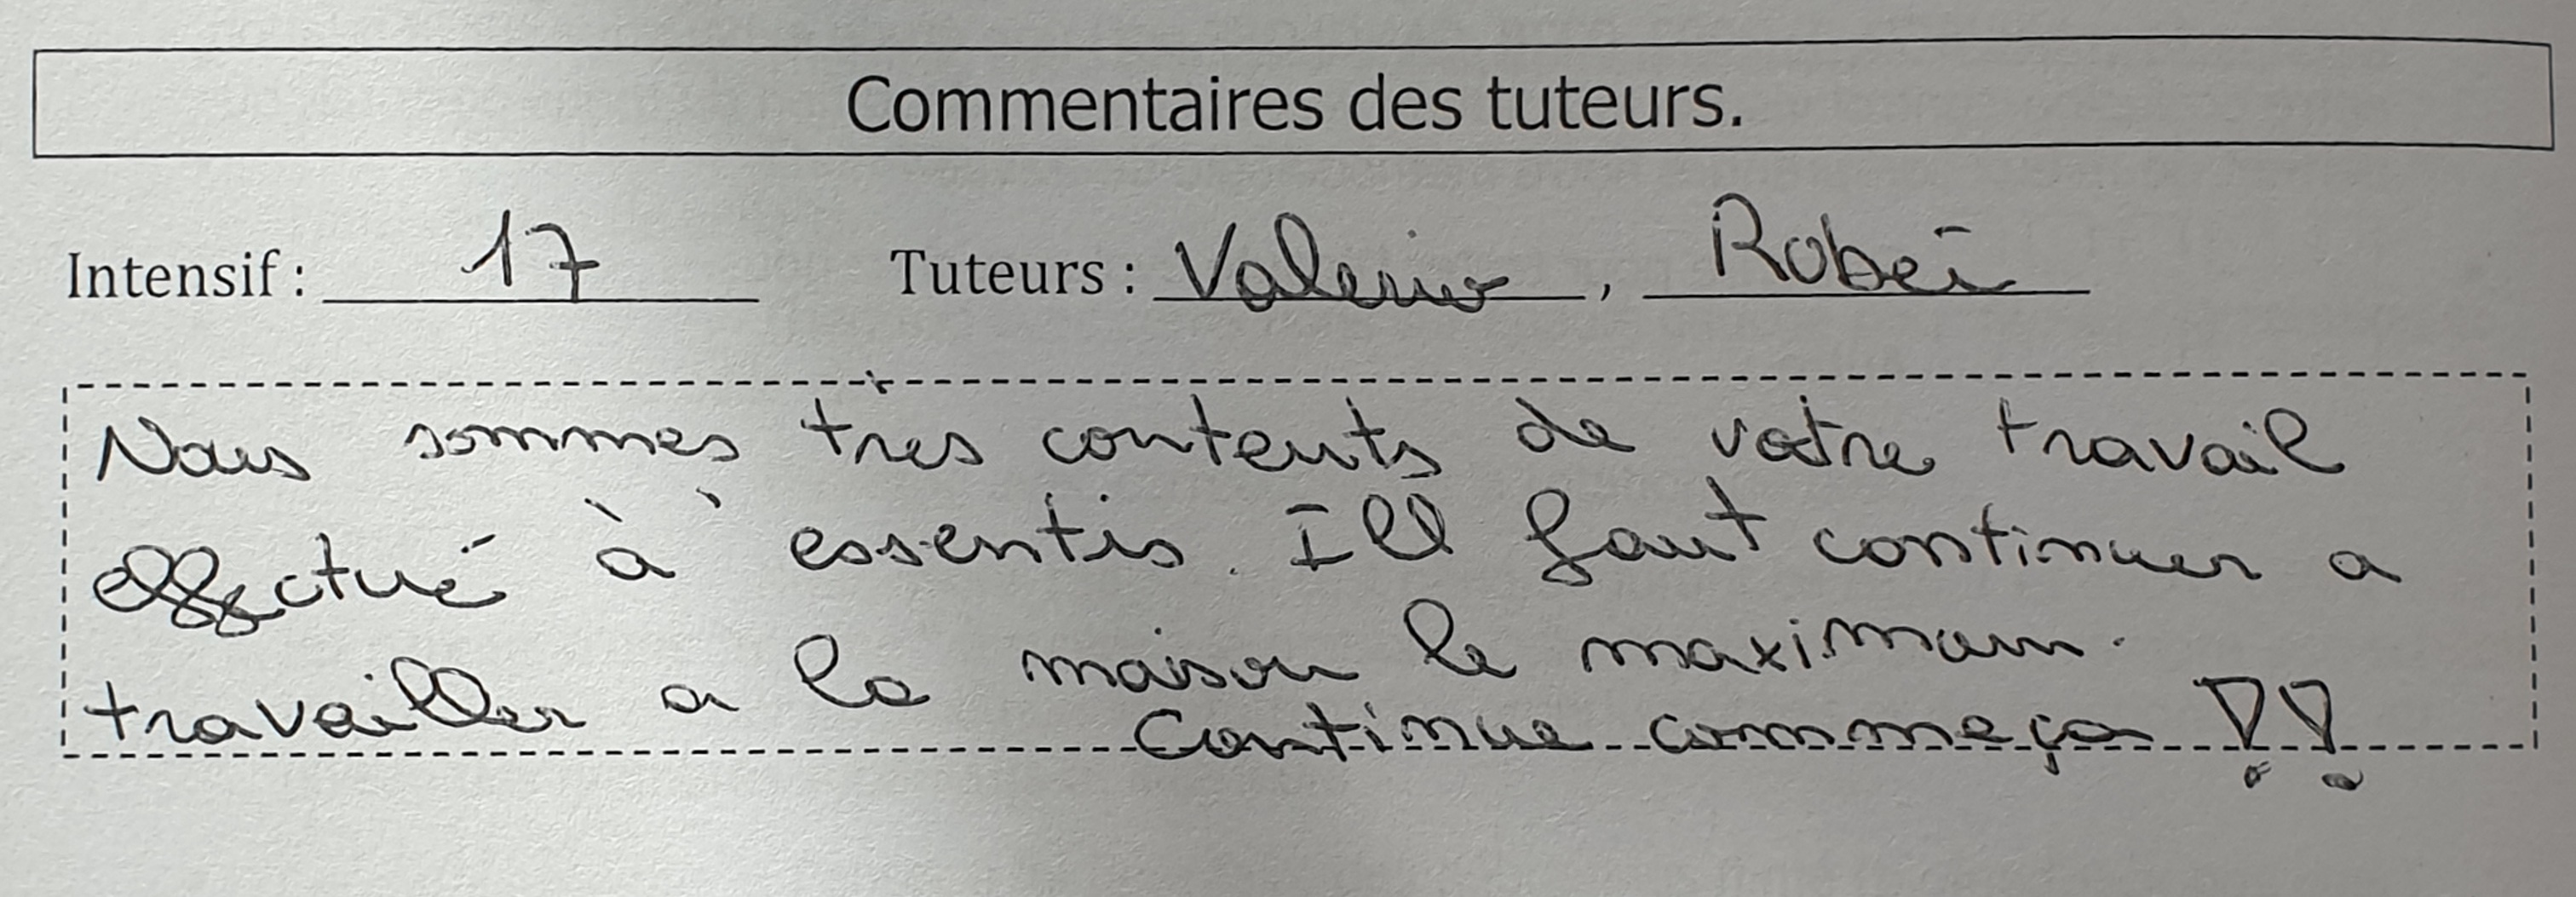 Commentaires des tuteurs.
Intensif : 17 Tuteurs : Valerio, Robei
Nous sommes très contents de votre travail
effectué à essentis. Ill faut continuer a
travailler a la maison le maximum.
Continue comme ça !!